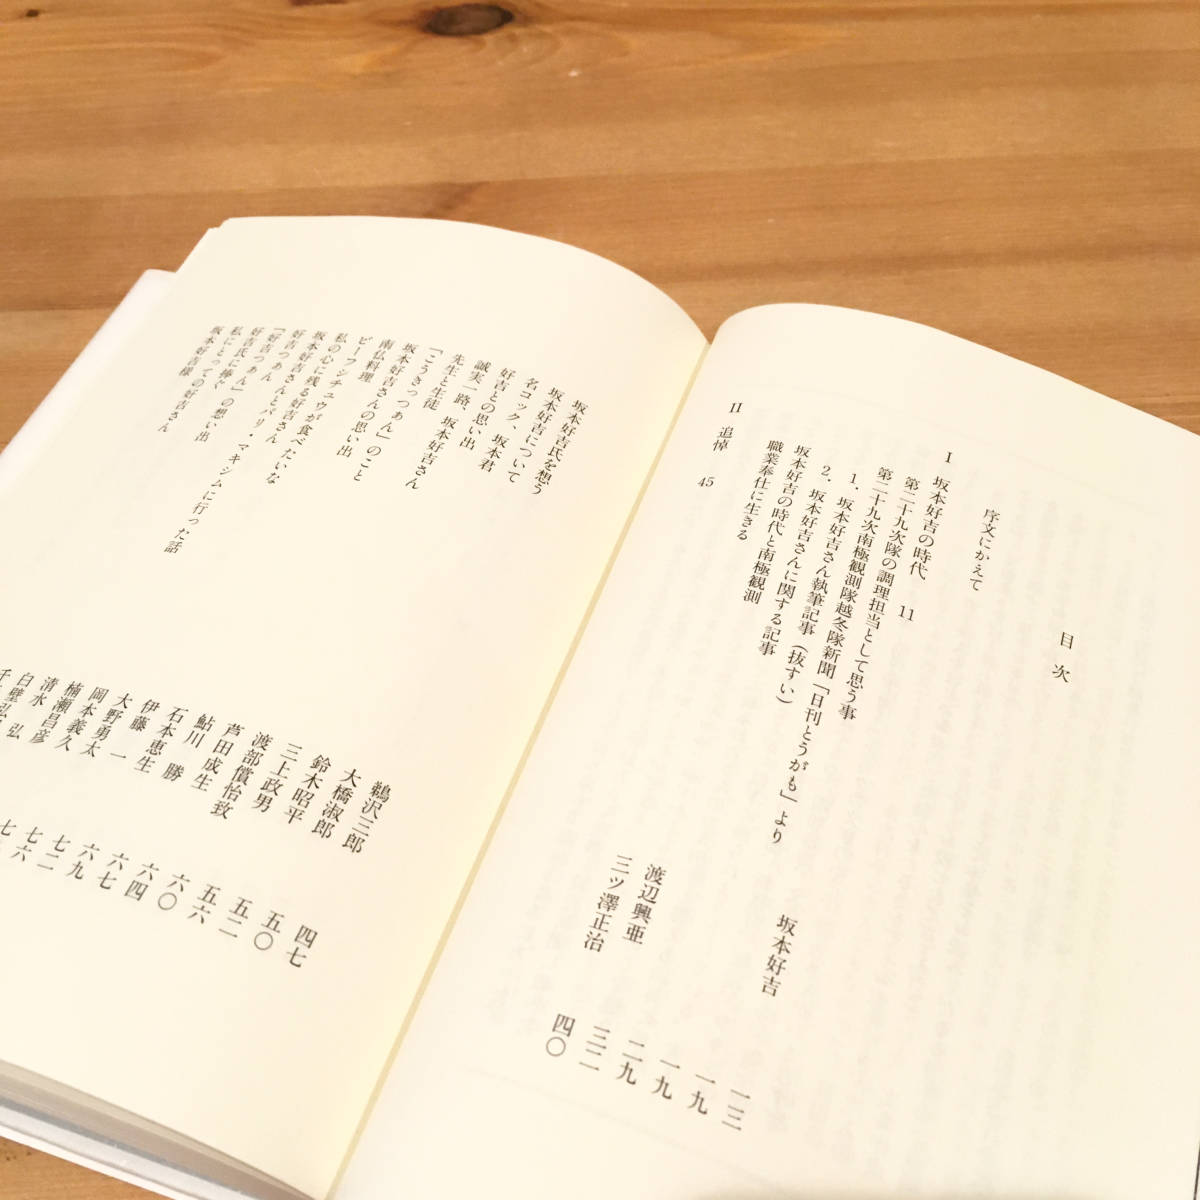 目次
序文にかえて
I 坂本好吉の時代 11
第二十九次隊の調理担当として思う事 坂本好吉 一三
第二十九次南極観測隊越冬隊新聞「日刊とうがも」より 一九
1. 坂本好吉さん執筆記事(抜すい) 一九
2. 坂本好吉さんに関する記事 二九
坂本好吉の時代と南極観測 渡辺興亜 三二
職業奉仕に生きる 三ツ澤正治 四〇
11 追悼 45
坂本好吉氏を想う 鵜沢三郎 四七
坂本好吉について 大橋淑郎 五〇
名コック、坂本君 鈴木昭平 五二
好吉との思い出 三上政男 五六
誠実一路、坂本好吉さん 渡部償怡致 六〇
先生と生徒 芦田成生 六四
「こうきっつあん」のこと 鮎川勝 六七
坂本好吉さんの思い出 石本恵生 六九
南仏料理 伊藤一 七二
ビーフシチュウが食べたいな 大野勇太
私の心に残る好吉さん 岡本義久
坂本好吉さんとパリ・マキシムに行った話 楠瀬昌彦
好吉つあん 清水弘
「好吉つあん」の想い出 白壁弘
好吉氏に捧ぐ
私にとっての好吉さん
坂本好吉様